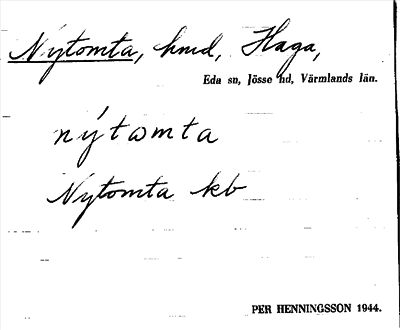 Nytomta, hmd, Haga,
Eda sn, Jösse hd, Värmlands län.
nýtωmta
Nytomta kb
PER HENNINGSSON 1944.